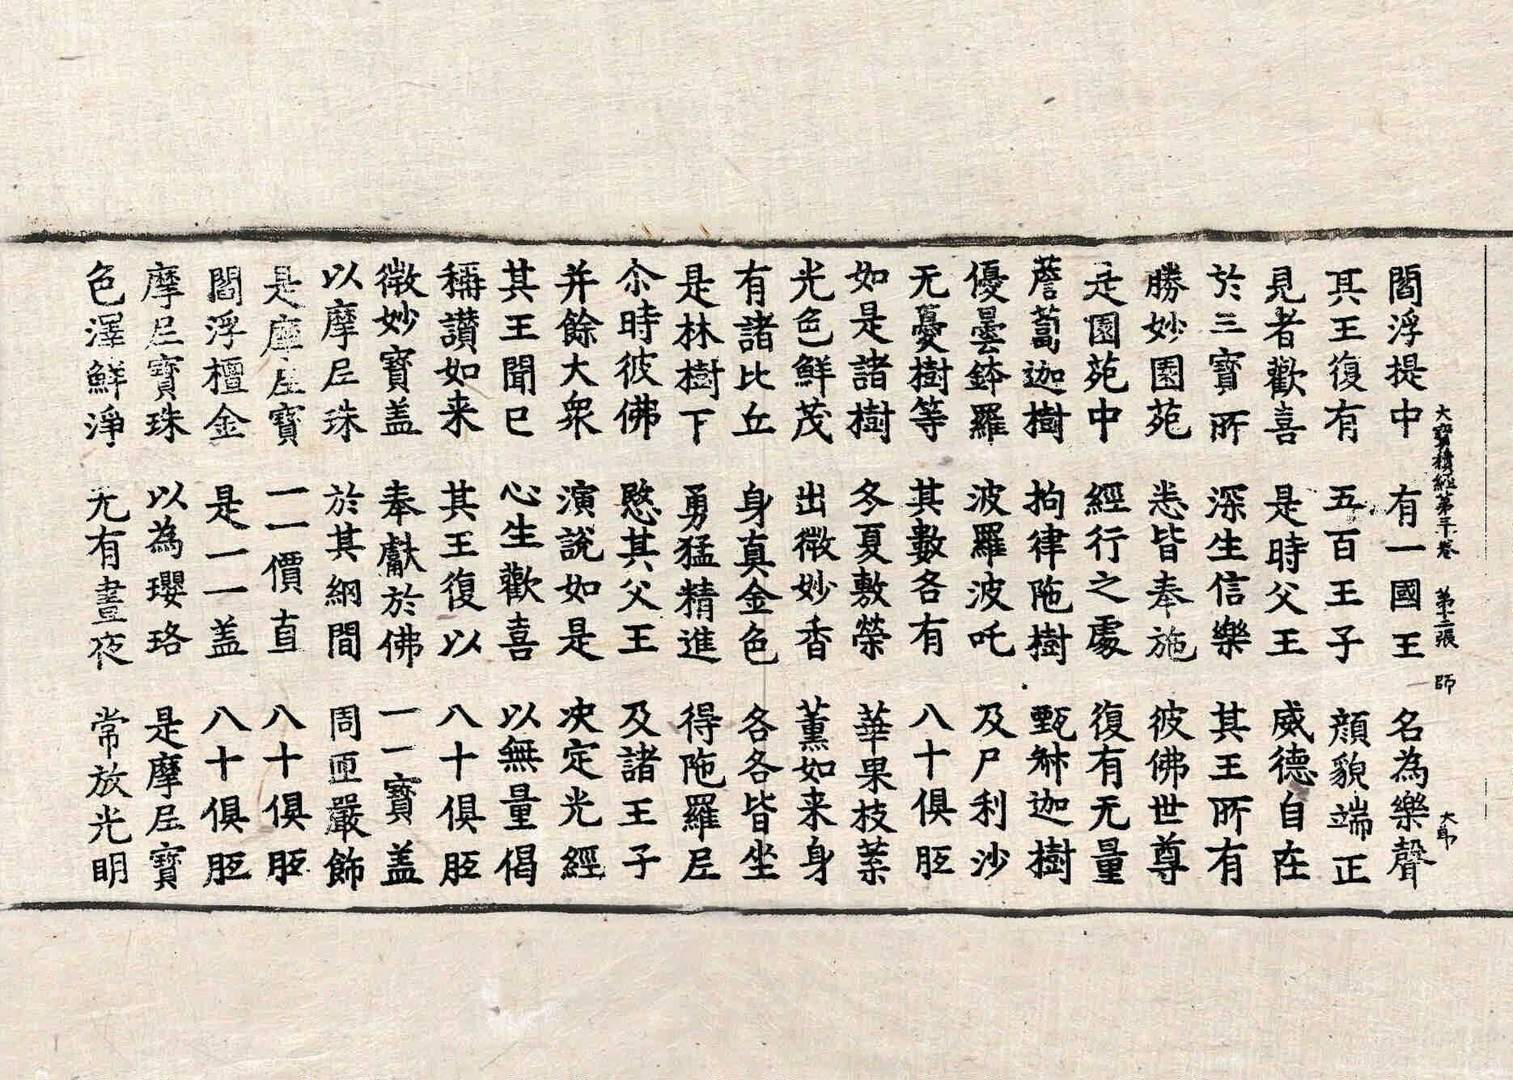 大寶積經第三十卷　第十二張　師　大郎
閻浮提中　有一國王　名為樂聲
其王復有　五百王子　顔貌端正
見者歡喜　是時父王　威德自在
於三寶所　深生信樂　其王所有
勝妙園苑　悉皆奉施　彼佛世尊
是園苑中　經行之處　復有无量
薝蔔迦樹　拘律陁樹　甄叔迦樹
優曇鉢羅　波羅波吒　及尸利沙
无憂樹等　其數各有　八十俱胝
如是諸樹　冬夏敷榮　華果枝葉
光色鮮茂　出微妙香　薰如来身
有諸比丘　身真金色　各各皆坐
是林樹下　勇猛精進　得陁羅尼
尒時彼佛　愍其父王　及諸王子
并餘大衆　演說如是　决定光經
其王聞已　心生歡喜　以無量偈
稱讃如来　其王復以　八十俱胝
微妙寶盖　奉獻於佛　一一寶盖
以摩尼珠　於其網間　周匝嚴飾
是摩尼寶　一一價直　八十俱胝
閻浮檀金　是一一盖　八十俱胝
摩尼寶珠　以為瓔珞　是摩尼寶
色澤鮮淨　无有晝夜　常放光明